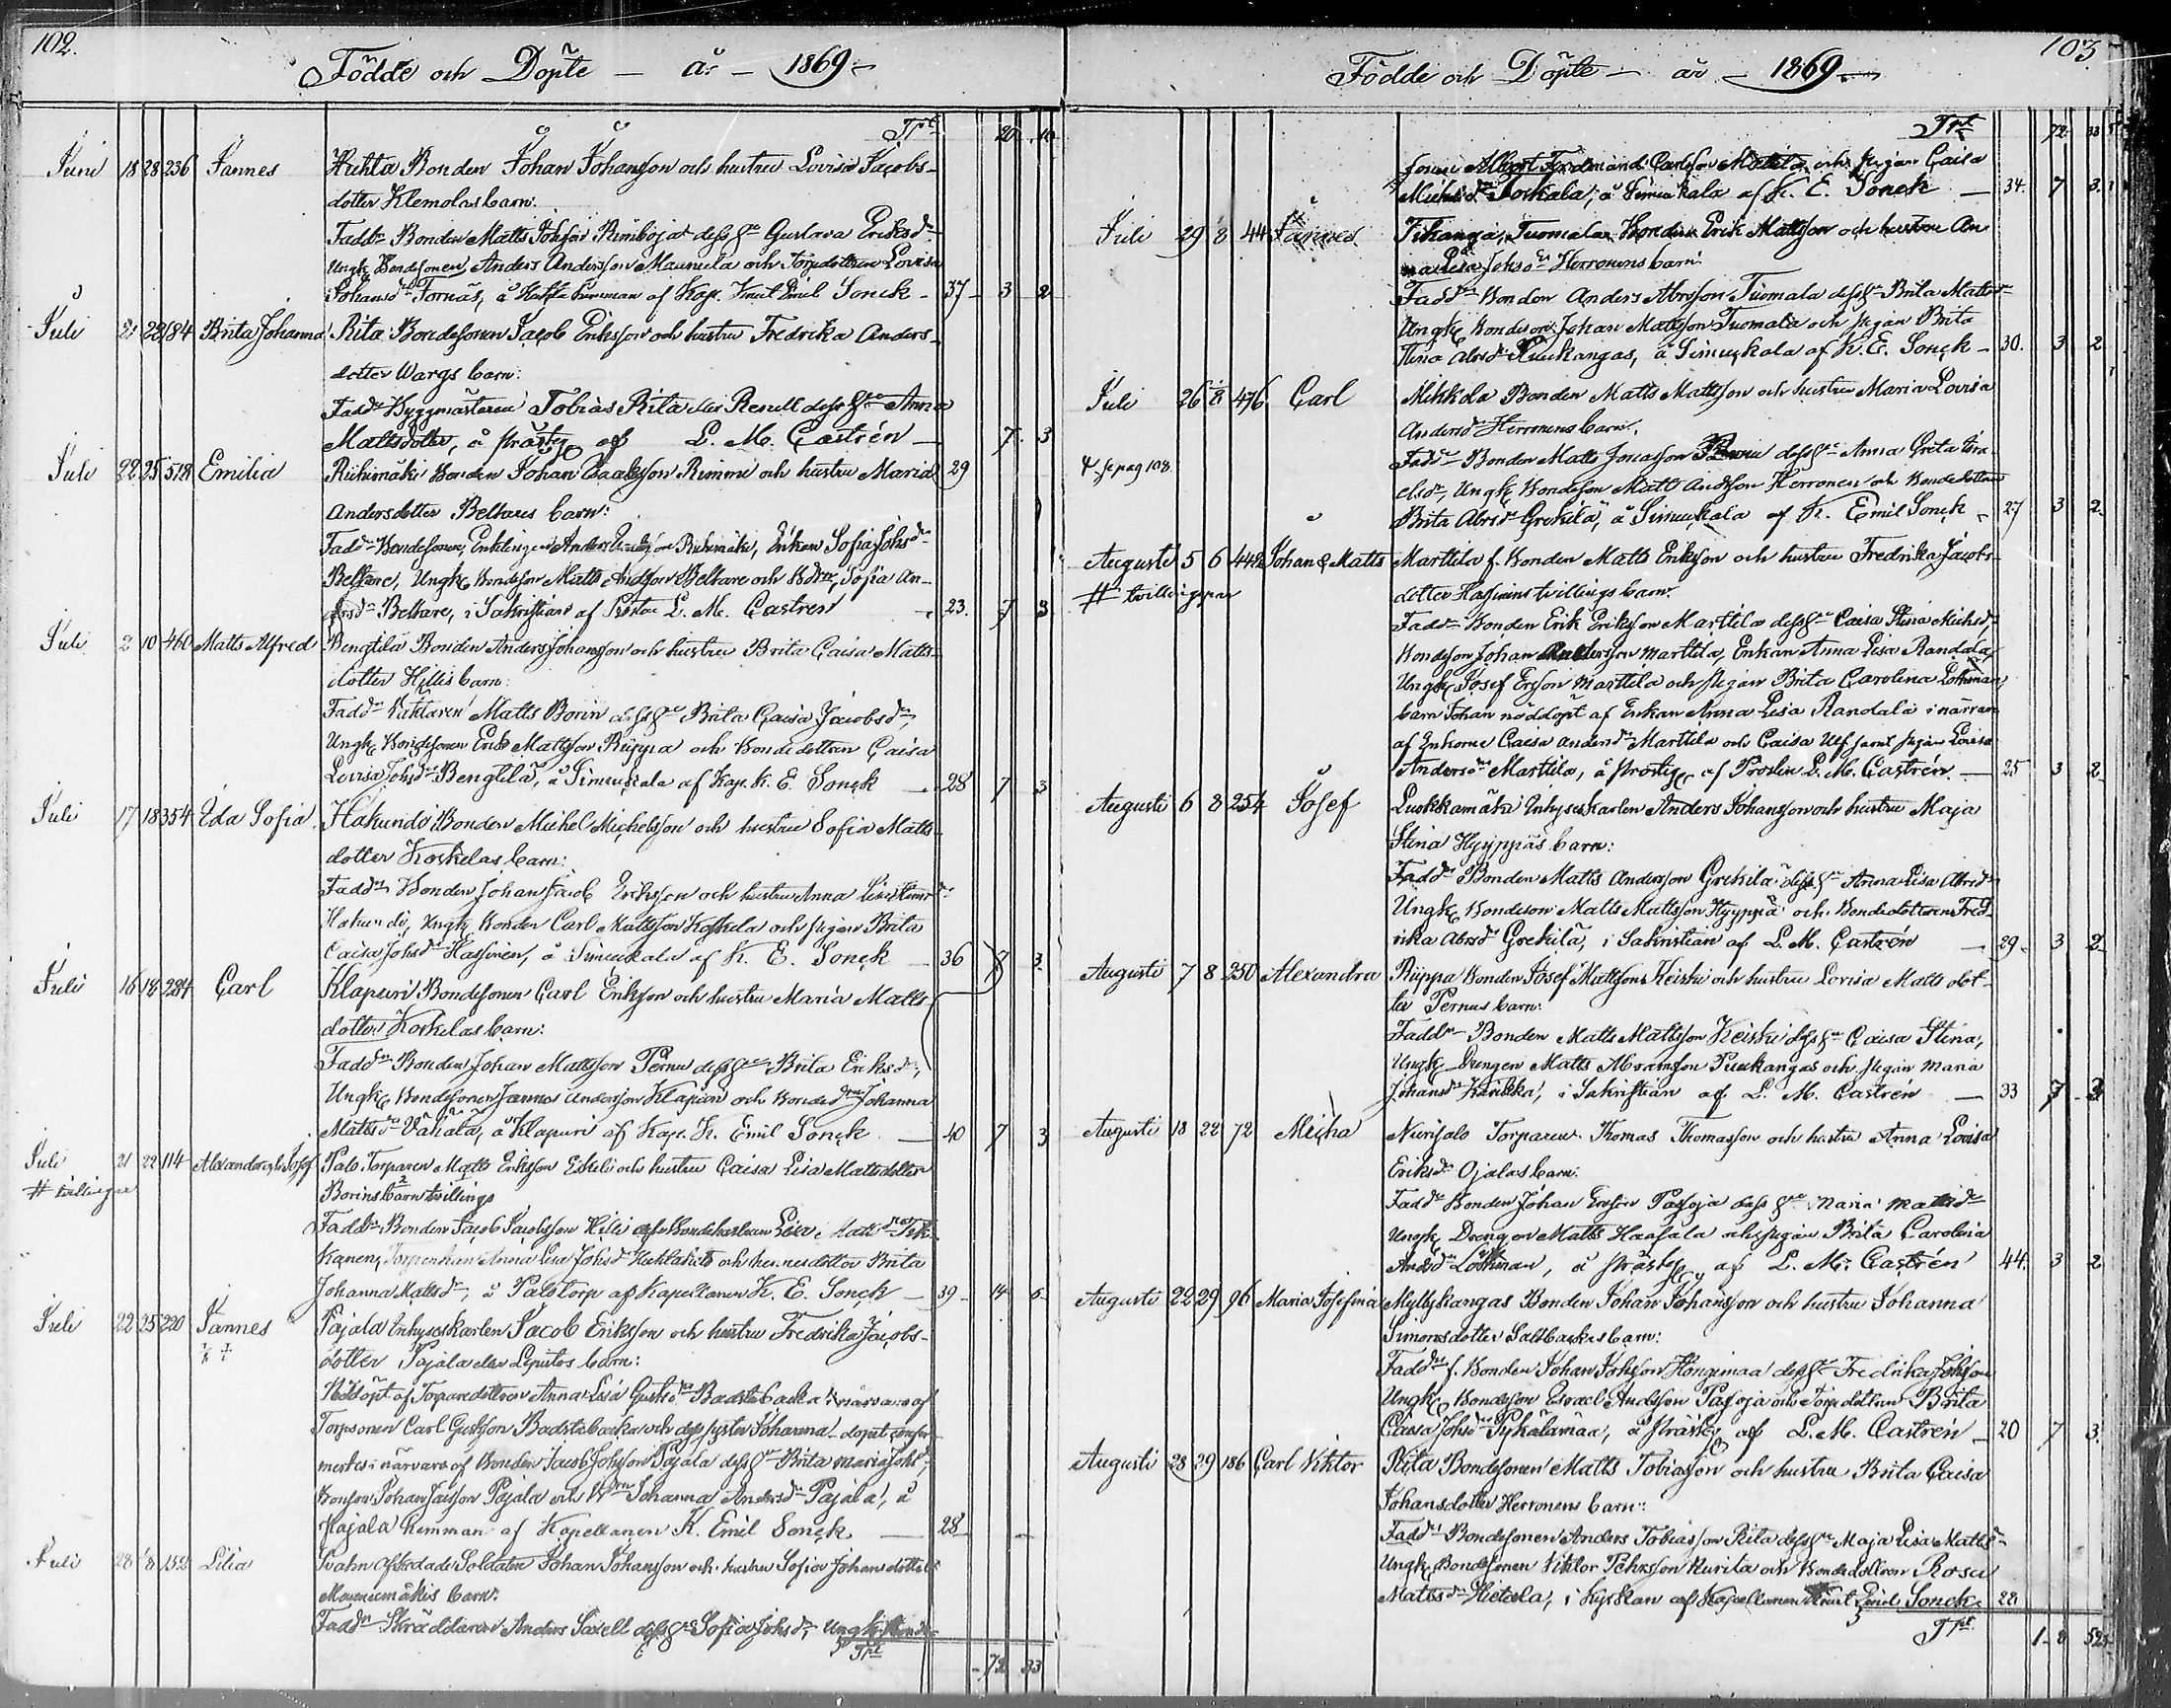 102.
Födde och Döpte — år — 1869 —
Trpt 20 10
Juni 18 28 236 Jannes Huhta Bonden Johan Johansson och hustru Lovisa Jacobs-
dotter Klemolas barn:
Faddr Bonden Matts Johsson dess hu Gustava Eriksdr
Ungk Bondesonen Anders Andersson Maunula och Torpedottren Lovisa
Johansdr Tornäs, å hemman af Kap. Knut Emil Sonck — 37 — 3 — 2
Juli 21 22 184 Brita Johanna Rita Bondesonen Jacob Eriksson och hustru Fredrika Anders-
dotter Wargs barn:
Faddr Byggmästaren Tobias Rita eller Renell dess hu Anna
Mattsdotter, å prästg af L. M. Castrén — 7 3
Juli 22 25 518 Emilia Riihimäki Bonden Johan Isaaksson Rimmi och hustru Maria 29
Andersdotter Beltares barn:
Faddr Bondesonen, Enklingen Anders Riihimäki, Enkan Sofia Johsdr
Beltare, Ungk Bondeson Matts Andsson Beltare och Bdttr Sofia An-
dersdr Beltare, i Sakristian af Prosten L. M. Castren — 23. 7 3
Juli 2 10 460 Matts Alfred Bengtila Bonden Anders Johansson och hustru Brita Caisa Matts-
dotter Hillis barn:
Faddr Vaktaren Matts Borin dess hu Brita Caisa Jacobsdr,
Ungk Bondesonen Erik Mattsson Piippa och Bondedottren Caisa
Lovisa Johsdr Bengtila, å Simuskala af Kap. K. E. Sonck — 28 7 3
Juli 17 18 354 Ida Sofia Hakundi Bonden Michel Michelsson och hustru Sofia Matts-
dotter Koskelas barn:
Faddr Bonden Johan Jacob Eriksson och hustru Anna Lisa
Hakundi, Ungk Bonden Carl Mattsson Koskela och pigan Brita
Caisa Johsdr Hassinen, å Simuskala af K. E. Sonck — 36 7 3
Juli 16 18 284 Carl Klapuri Bondesonen Carl Eriksson och hustru Maria Matts-
dotter Koskelas barn:
Faddr Bonden Johan Mattsson Pernu dess hu Brita Eriksdr,
Ungk Bondesonen Jannes Andersson Klapuri och Bondedttrn Johanna
Mattsdr Vähälä, å Klapuri af Kap. K. Emil Sonck — 40 7 3
Juli 21 22 114 Alexander & Josef Palo Torparen Matts Eriksson Eskeli och hustru Caisa Lisa Mattsdotter
# tvillingar Borins barn tvillings
Faddr Bonden Jacob Jacobsson Hilli Bondehustrun Lisa Mattsdr
Kanen, Torpenkan Anna Lisa Johsdr och dotter Brita
Johanna Mattsdr, å Palotorp af Kapellanen K. E. Sonck — 39 — 14 6
Juli 22 25 220 Jannes Pajala Inhyseskarlen Jacob Eriksson och hustru Fredrika Jacobs-
dotter Pajala eller Lepistos barn:
Nöddöpt af Torparedottren Anna Lisa Gustsdr Badstubacka i närvaro af
Torpsonen Carl Gustsson Badstubacka och dess syster Johanna. dopet confir-
merkes i närvaro af Bonden Jacob Johsson Pajala dess hu Brita Maria
Bonson Johan Pajala och Johanna Andersdr Pajala, å
Pajala hemman af Kapellanen K. Emil Sonck — 28
Juli 28 8 152 Lilia Svahn Afskedade Soldaten Johan Johansson och hustru Sofia Johansdotter
barn:
Faddr Skräddaren Anders Saxell dess hu Sofia Johsdr, Ungk
Trpt
72 33
103.
Födde och Döpte — år — 1869 —
Trpt 72 33
sonen Albert Ferdinand Carlsson Mattila och pigan Caisa
Michelsdr Torkala, å Simuskala af K. E. Sonck — 34. 7 3.
Juli 29 8 44 Jannes Tikanoja, Tuomala Bonden Erik Mattsson och hustru An-
na Lisa Johsdr Herronens barn:
Faddr Bonden Anders Abrsson Tuomala dess hu Brita Mattsdr
Ungk Bondeson Johan Mattsson Tuomala och pigan Brita
Stina Abrsdr Puukangas, å Simuskala af K. E. Sonck — 30. 3 2
Juli 26 8 476 Carl Mikkola Bonden Matts Mattsson och hustru Maria Lovisa
Andersdr Herronens barn.
4 se pag 108. Faddr Bonden Matts Jonasson dess hu Anna Greta Isra-
elsdr, Ungk Bondeson Matts Andsson Herronen och Bondedottren
Brita Abrsdr Grekilä, å Simuskala af K. Emil Sonck — 27 3 2
Augusti 5 6 442 Johan & Matts Marttila f. Bonden Matts Eriksson och hustru Fredrika Jacobs-
# tvillingpar dotter Hassinens tvillings barn.
Faddr Bonden Erik Eriksson Marttila dess hu Caisa Stina Michsdr
Bondeson Johan Andersson Marttila, Enkan Anna Lisa Randala,
Ungk Josef Ersson Marttila och pigan Brita Carolina Lothman,
barn Johan nöddöpt af Enkan Anna Lisa Randala i närvaro
af Enkorne Caisa Andersdr Marttila och Caisa Ulf samt pigan Lovisa
Andersdr Marttila, å prästg af Prosten L. M. Castrén — 25 3 2
Augusti 6 8 254 Josef Luokkamäki Inhyseskarlen Anders Johansson och hustru Maja
Stina Hyyppäs barn:
Faddr Bonden Matts Andersson Grekilä dess hu Anna Lisa Abrsdr
Ungk Bondeson Matts Mattsson Hyyppä och Bondedottren Fred-
rika Abrsdr Grekilä, i Sakristian af L. M. Castrén — 29 3 2
Augusti 7 8 250 Alexandra Piippa Bonden Josef Mattsson Keiski och hustru Lovisa Matts dot-
ter Pernus barn:
Faddr Bonden Matts Mattsson Keiski dess hu Caisa Stina,
Ungk Drengen Matts Abramsson Puukangas och pigan Maria
Johansdr Karikka, i Sakristian af L. M. Castrén — 33 7 3
Augusti 18 22 72 Micha Niurisalo Torparen Thomas Thomasson och hustru Anna Lovisa
Eriksdr Ojalas barn.
Faddr Bonden Johan Ersson Pasoja dess hu Maria Mattsdr
Ungk Drengen Matts Haasala och pigan Brita Carolina
Andsdr Lothman, å prästg af L. M. Castrén 44. 3 2
Augusti 22 29 96 Maria Josefina Myllykangas Bonden Johan Johansson och hustru Johanna
Simonsdotter Saltbackas barn:
Faddr f. Bonden Johan Johsson Hongimaa dess hu Fredrika
Ungk Bondeson Esrael Andsson Pasoja och Torpdottren Brita
Caisa Johsdr Pykälämäa, å prästg af L. M. Castrén — 20 7 3.
Augusti 28 29 186 Carl Viktor Rita Bondesonen Matts Tobiasson och hustru Brita Caisa
Johansdotter Herronens barn:
Faddr Bondesonen Anders Tobiasson Rita dess hu Maja Lisa Mattsdr
Ungk Bondesonen Viktor Pehrsson Hurila och Bondedottren Rosa
Mattsdr Hietala, i Kyrkan af Kapellanen Knut Emil Sonck. 22
Trpt